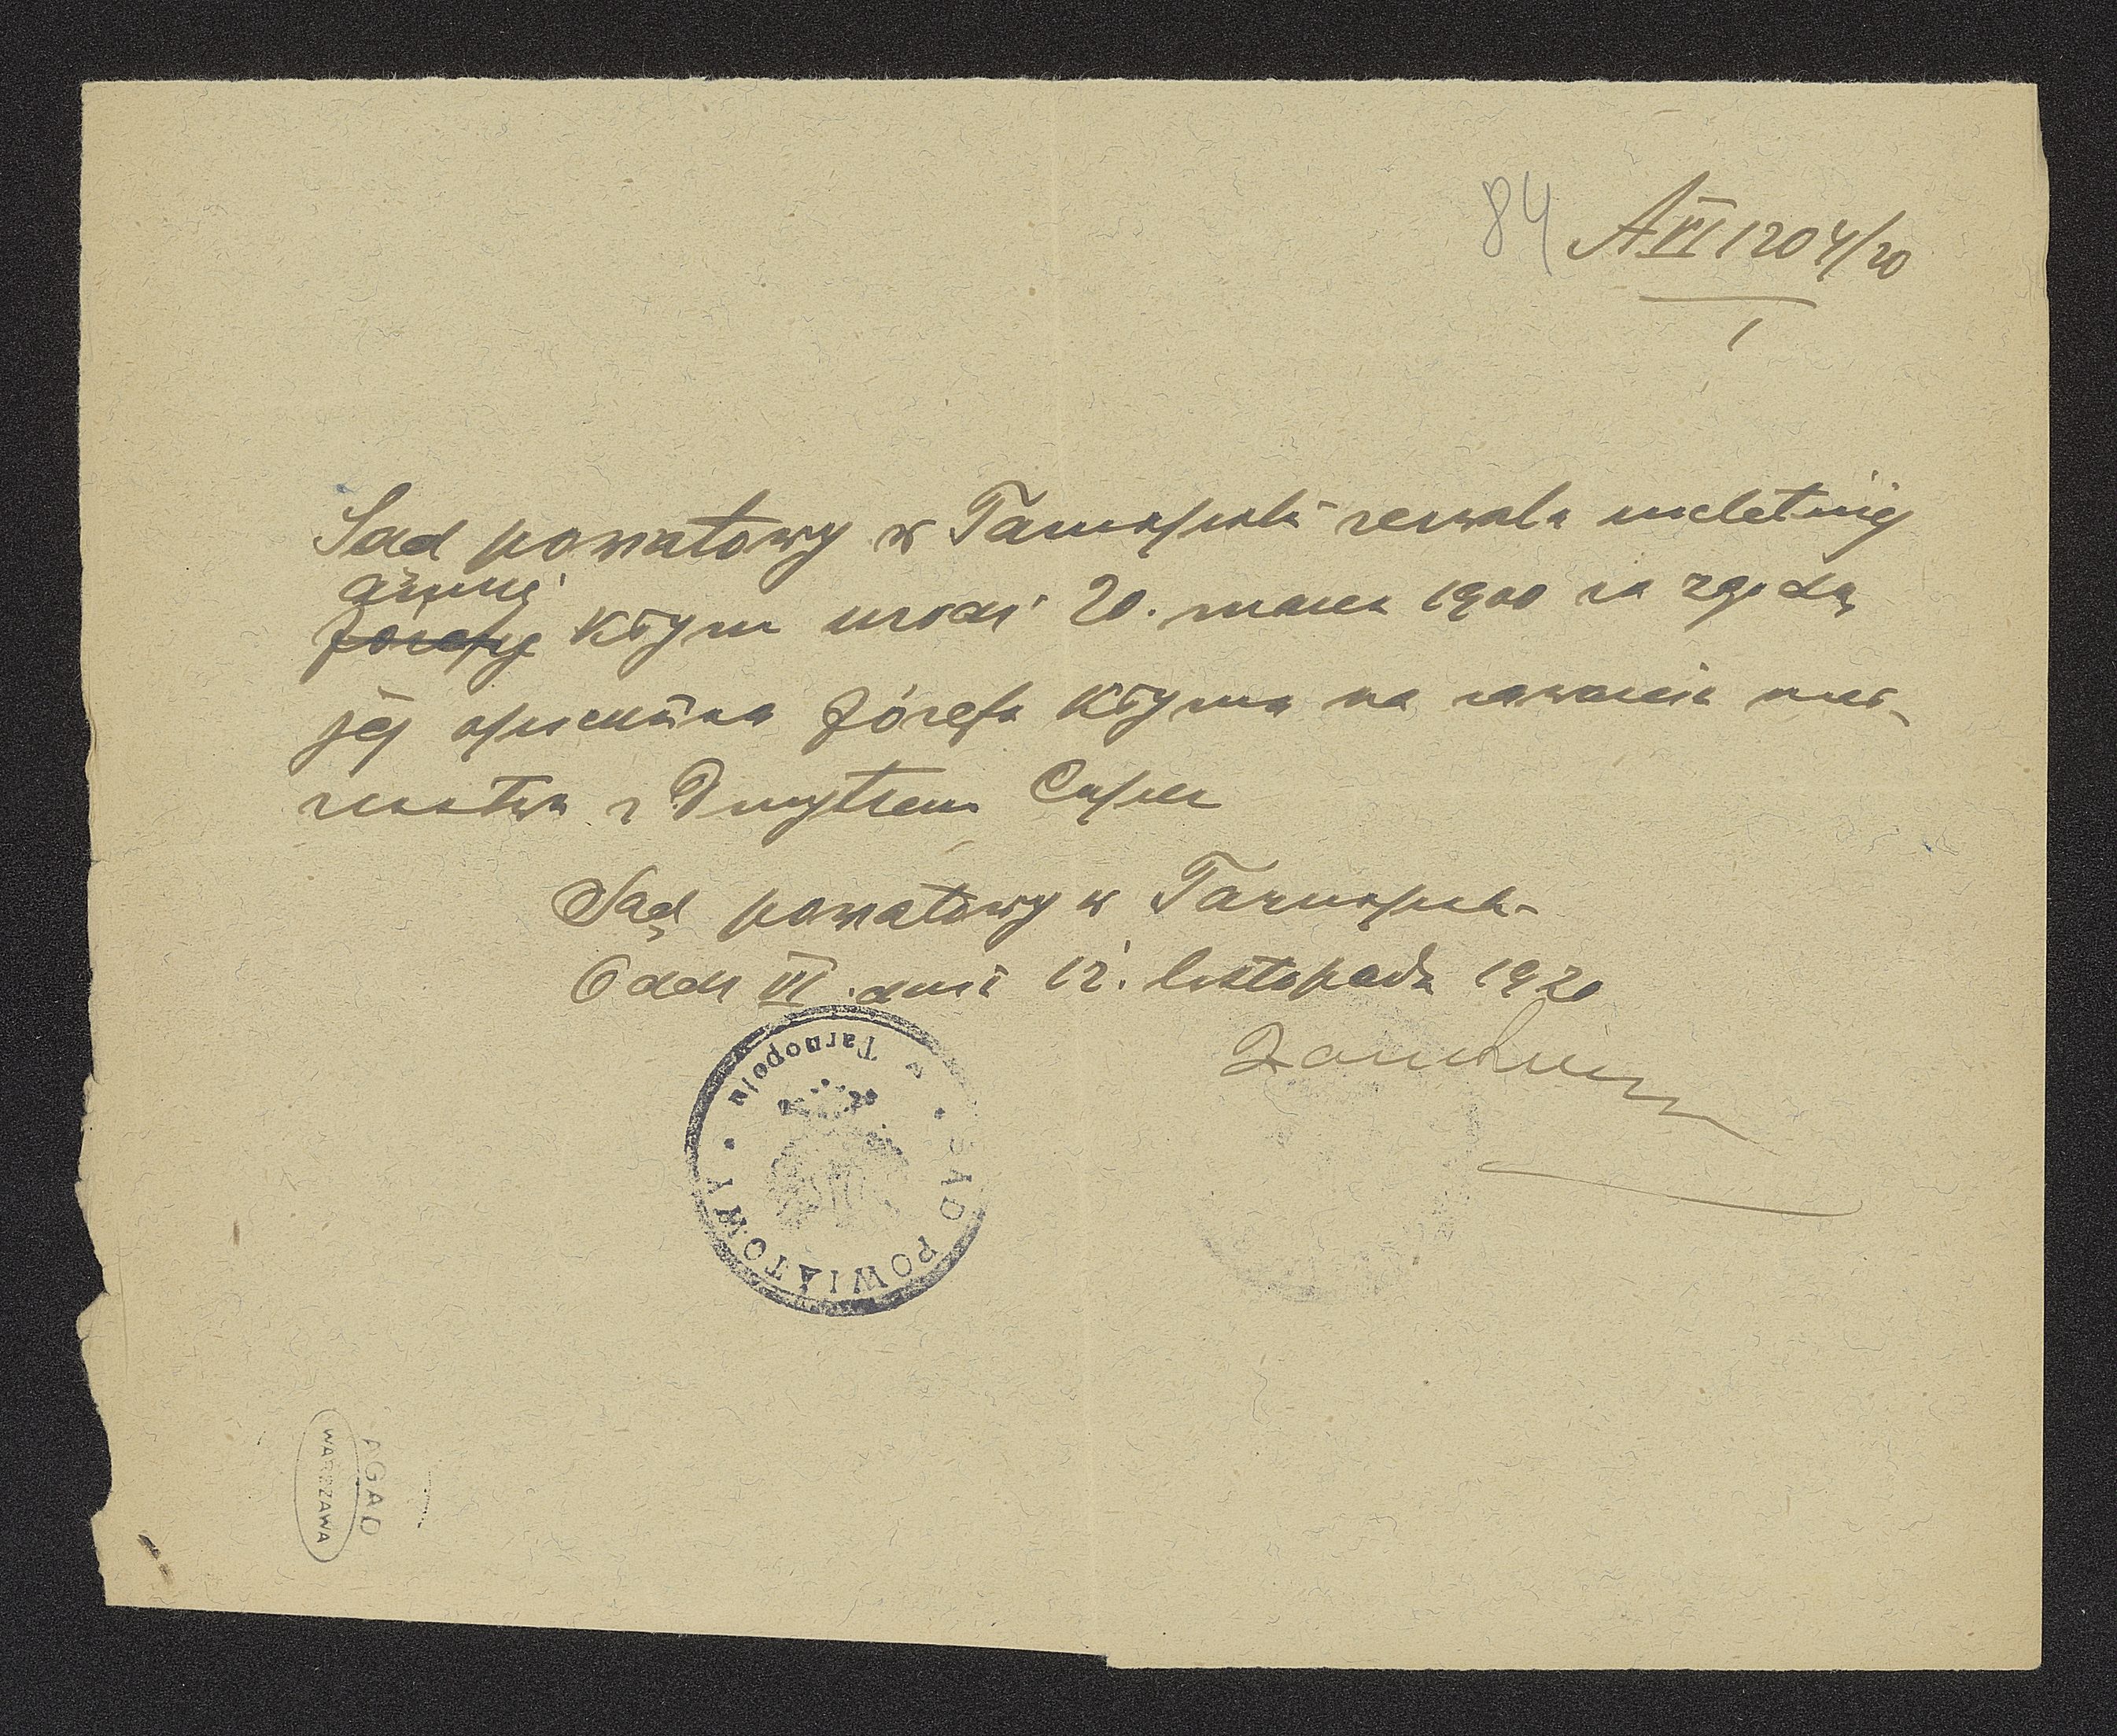 84 A VI 1204/20
1
Sąd powiatowy w Tarnopolu zezwala nieletniej
Annie
Józefie Kłym urodz 20. marca 1900 za zgodą
jej opiekuna Józefa Kłyma na zawarcie mał-
żeństwa z Dmytrem
Sąd powiatowy w Tarnopolu
Oddz VI. dnia 12. listopada 1920
SĄD POWIATOWY
w Tarnopolu
AGAD
WARSZAWA